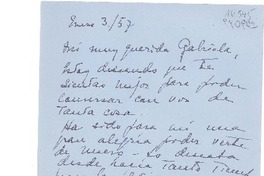 Enero 3/57
Mi muy querida Gabriela,
Estoy deseando que te
sientas mejor para poder
conversar con vos de
tanta cosa.
Ha sido para mí una
gran alegría poder verte
de nuevo - Lo deseaba
desde hacía tanto tiempo